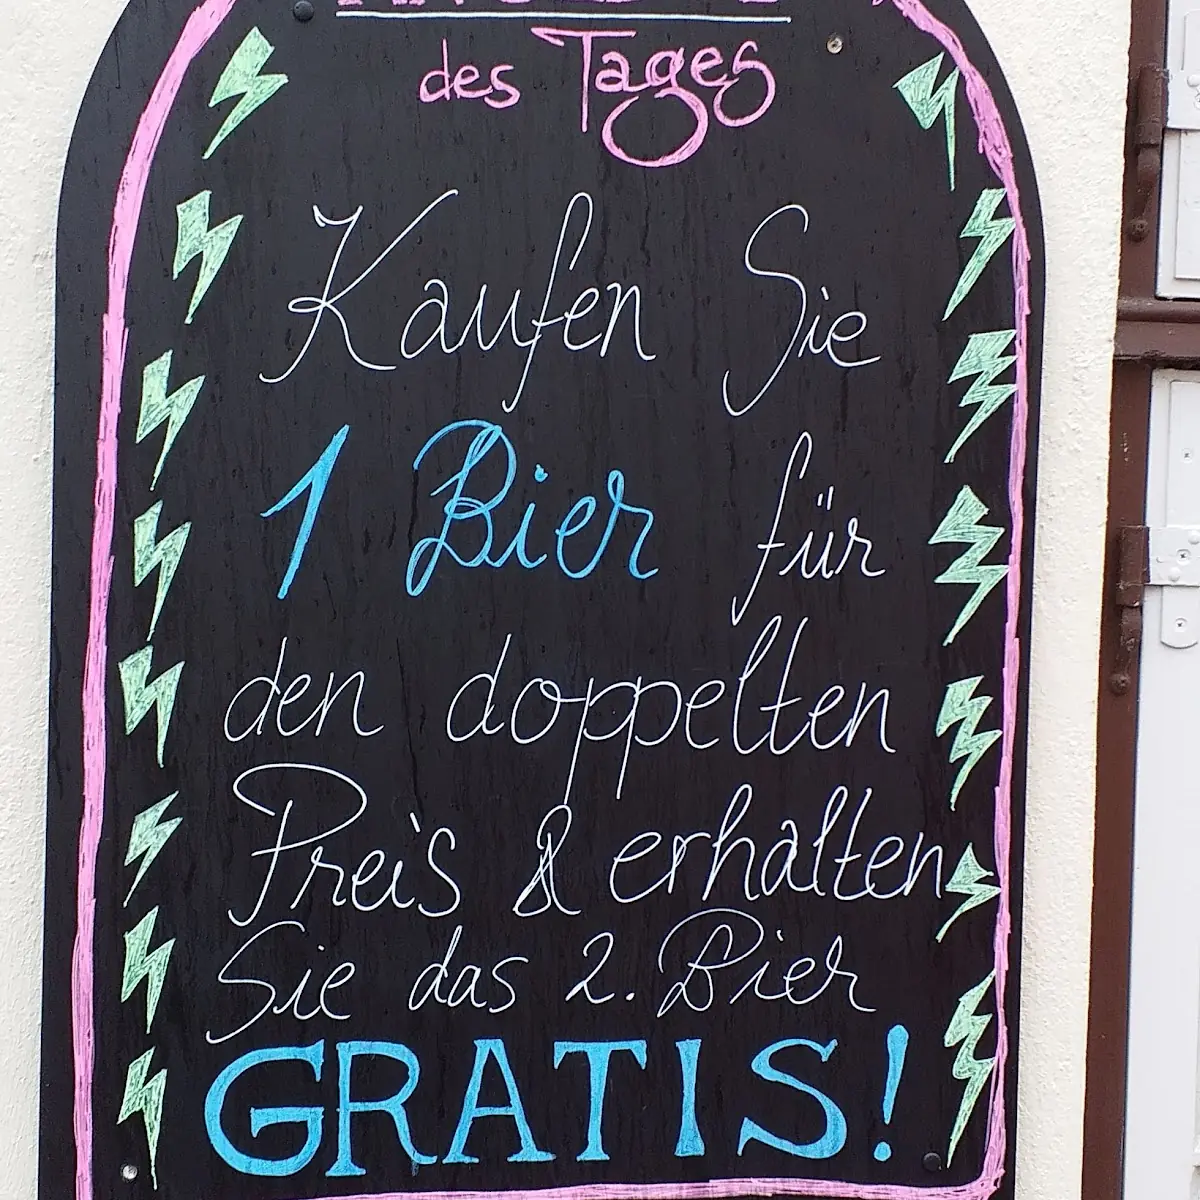 des Tages
Kaufen Sie
1 Bier für
den doppelten
Preis & erhalten
Sie das 2. Bier
GRATIS!